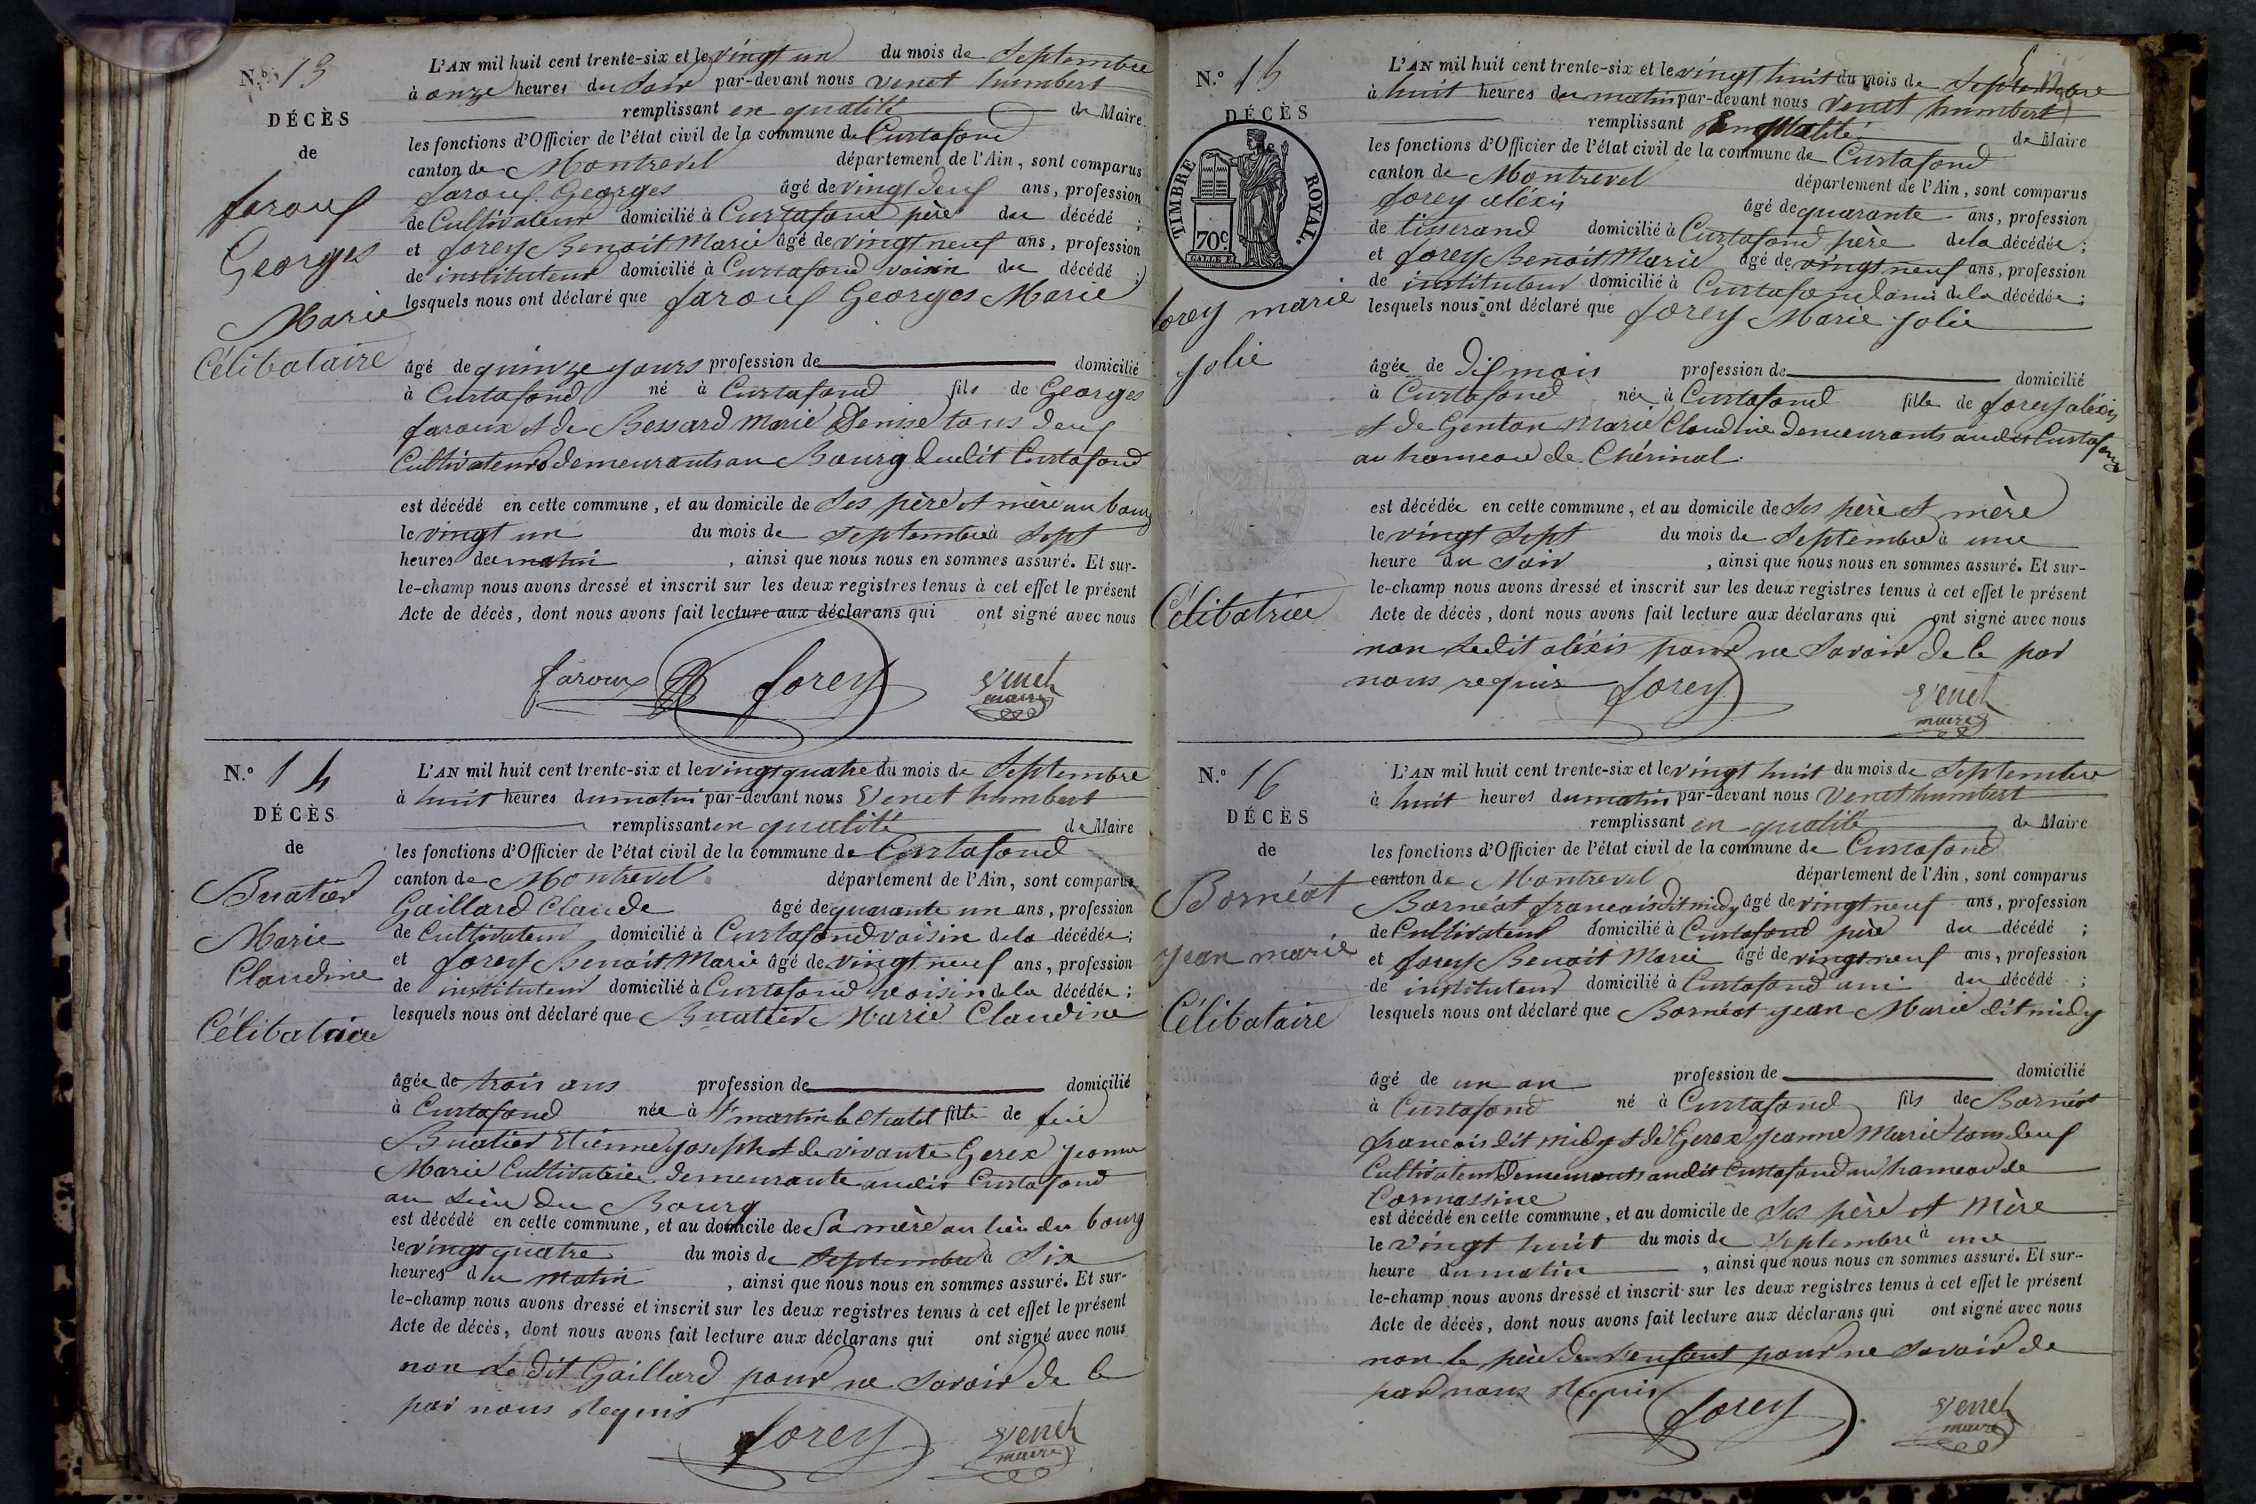 N.º 13
DÉCÈS
de
faroux
Georges
Marie
Célibataire
L'AN mil huit cent trente-six et le vingt un du mois de Septembre
à onze heures du Soir par-devant nous venet humbert
remplissant en qualité de Maire
les fonctions d'Officier de l'état civil de la commune de Curtafond
canton de Montrevel département de l'Ain, sont comparus
faroux Georges âgé de vingt deux ans, profession
de Cultivateur domicilié à Curtafond père du décédé ;
et forey Benoit Marie âgé de vingt neuf ans, profession
de instituteur domicilié à Curtafond voisin du décédé ;
lesquels nous ont déclaré que faroux Georges Marie
âgé de quinze jours profession de domicilié
à Curtafond né à Curtafond fils de Georges
faroux et de Bessard Marie Denise tous deux
Cultivateurs demeurants au Bourg dudit Curtafond
est décédé en cette commune, et au domicile de Ses père et mère au bourg
le vingt un du mois de Septembre à Sept
heures de matin , ainsi que nous nous en sommes assuré. Et sur-
le-champ nous avons dressé et inscrit sur les deux registres tenus à cet effet le présent
Acte de décès, dont nous avons fait lecture aux déclarans qui ont signé avec nous
faroux forey Venet
maire
N.º 14
DÉCÈS
de
Buatier
Marie
Claudine
Célibataire
L'AN mil huit cent trente-six et le vingt quatre du mois de Septembre
à huit heures du matin par-devant nous Venet humbert
remplissant en qualité de Maire
les fonctions d'Officier de l'état civil de la commune de Curtafond
canton de Montrevel département de l'Ain, sont comparus
Gaillard Claude âgé de quarante un ans, profession
de Cultivateur domicilié à Curtafond voisin de la décédée ;
et forey Benoit Marie âgé de vingt neuf ans, profession
de instituteur domicilié à Curtafond voisin de la décédée ;
lesquels nous ont déclaré que Buatier Marie Claudine
âgée de trois ans profession de domicilié
à Curtafond née à St martin le Chatel fille de feu
Buatier Etienne joseph et de vivante Gerex jeanne
Marie Cultivatrice demeurante audit Curtafond
au lieu du Bourg
est décédé en cette commune, et au domicile de Sa mère au lieu du bourg
le vingt quatre du mois de Septembre à Six
heures du matin , ainsi que nous nous en sommes assuré. Et sur-
le-champ nous avons dressé et inscrit sur les deux registres tenus à cet effet le présent
Acte de décès, dont nous avons fait lecture aux déclarans qui ont signé avec nous
non le dit Gaillard pour ne Savoir de ce
par nous Requis
forey Venet
maire
N.º 15
DÉCÈS
TIMBRE ROYAL.
70c.
forey marie
jolie
Célibatrice
L'AN mil huit cent trente-six et le vingt huit du mois de Septembre
à huit heures du matin par-devant nous Venet humbert
remplissant en qualité de Maire
les fonctions d'Officier de l'état civil de la commune de Curtafond
canton de Montrevel département de l'Ain, sont comparus
forey aléxis âgé de quarante ans, profession
de tisserand domicilié à Curtafond père de la décédée ;
et forey Benoit Marie âgé de vingt neuf ans, profession
de instituteur domicilié à Curtafond ami de la décédée ;
lesquels nous ont déclaré que forey Marie jolie
âgée de Dix mois profession de domicilié
à Curtafond née à Curtafond fille de forey aléxis
et de Genton Marie Claudine demeurants audit Curtafond
au hameau de Chérinal.
est décédée en cette commune, et au domicile de Ses père et mère
le vingt Sept du mois de Septembre à une
heure du Soir , ainsi que nous nous en sommes assuré. Et sur-
le-champ nous avons dressé et inscrit sur les deux registres tenus à cet effet le présent
Acte de décès, dont nous avons fait lecture aux déclarans qui ont signé avec nous
non ledit aléxis pour ne Savoir de ce par
nous requis forey Venet
maire
N.º 16
DÉCÈS
de
Bornéat
jean marie
Célibataire
L'AN mil huit cent trente-six et le vingt huit du mois de Septembre
à huit heures du matin par-devant nous Venet humbert
remplissant en qualité de Maire
les fonctions d'Officier de l'état civil de la commune de Curtafond
canton de Montrevel département de l'Ain, sont comparus
Bornéat francois dit midy âgé de vingt neuf ans, profession
de Cultivateur domicilié à Curtafond père du décédé ;
et forey Benoit Marie âgé de vingt neuf ans, profession
de instituteur domicilié à Curtafond ami du décédé ;
lesquels nous ont déclaré que Bornéat jean Marie dit midy
âgé de un an profession de domicilié
à Curtafond né à Curtafond fils de Bornéat
francois dit midy et de Gerex jeanne Marie tous deux
Cultivateurs Demeurants audit Curtafond au hameau de
Cormassine
est décédé en cette commune, et au domicile de Ses père et Mère
le Vingt huit du mois de Septembre à une
heure du matin , ainsi que nous nous en sommes assuré. Et sur-
le-champ nous avons dressé et inscrit sur les deux registres tenus à cet effet le présent
Acte de décès, dont nous avons fait lecture aux déclarans qui ont signé avec nous
non le père de l'enfant pour ne Savoir de
par nous Requis
forey Venet
maire